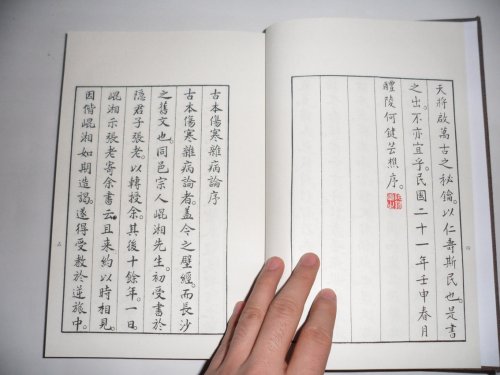 天將啟萬古之祕鑰。以仁壽斯民也。是書
之出。不亦宜乎。民國二十一年壬申春月
醴陵何鍵芸樵序。
古本傷寒雜病論序
古本傷寒雜病論者。蓋今之壁經。而長沙
之舊文也。同邑宗人崐湘先生。初受書於
隱君子張老。以轉授余。其後十餘年。一日。
崐湘示張老寄余書云。且來約以時相見。
因偕崐湘如期造謁。遂得受教於逆旅中。